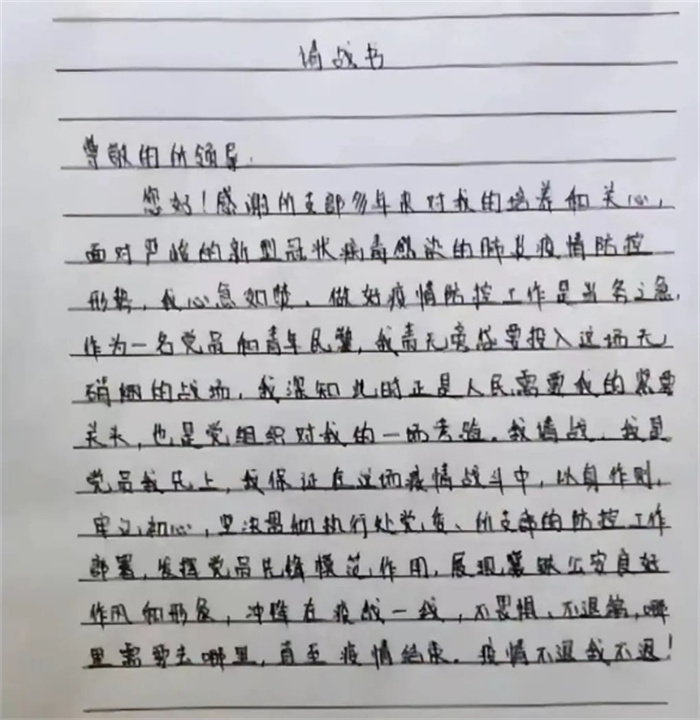 请战书
尊敬的所领导:
您好!感谢所支部多年来对我的培养和关心,
面对严峻的新型冠状病毒感染的肺炎疫情防控
形势,我心急如焚、做好疫情防控工作是当务之急,
作为一名党员和青年民警,我责无旁贷要投入这场无
硝烟的战场,我深知此时正是人民需要我的紧要
关头,也是党组织对我的一场考验。我请战,我是
党员我先上,我保证在这场疫情战斗中,以身作则,
牢记初心,坚决贯彻执行处党委、所支部的防控工作
部署,发挥党员先锋模范作用,展现襄铁公安良好
作风和形象,冲锋在疫战一线,不畏惧、不退缩,哪
里需要去哪里,直至疫情结束。疫情不退我不退!